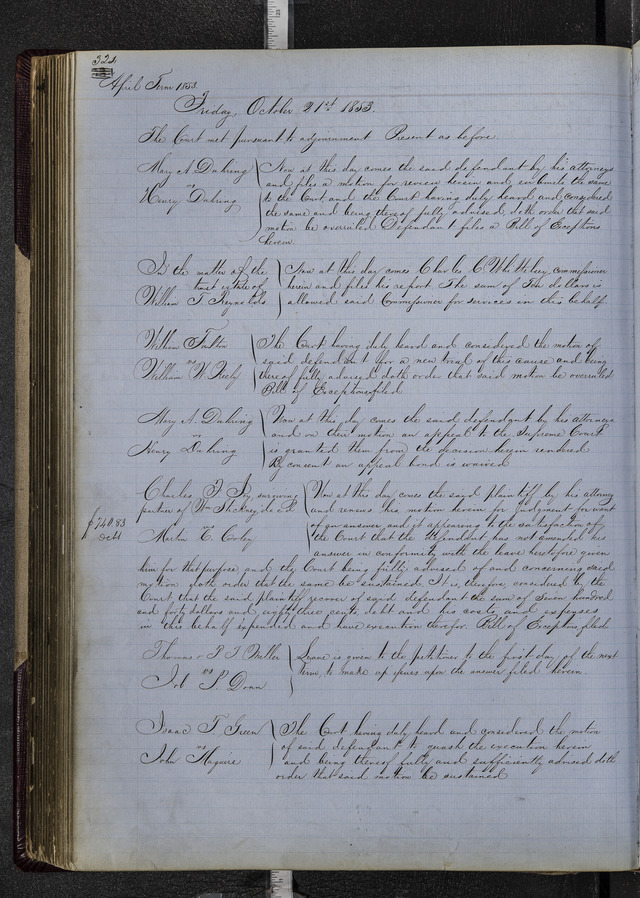 324
April Term 1853.
Friday, October 21st 1853.
The Court met pursuant to adjournment Present as before
Mary A Duhring
vs
Henry Duhring
Now at this day comes the said defendant by his attorneys
and files a motion for review herein and submits the same
to the Court, and the Court having duly heard and considered
the same and being thereof fully advised, doth order that said
motion be overruled Defendant files a Bill of Exceptions
herein
In the matter of the
trust estate of
William T Reynolds
Now at this day comes Charles C. Whittlesey, commissioner
herein and files his report. The sum of Ten dollars is
allowed said Commissioner for services in this behalf.
William
vs
William W.
The Court having duly heard and considered the motion of
said defendant for a new trial of this cause and being
thereof fully advised doth order that said motion be overruled
Bill of Exceptions filed
Mary A. Duhring
vs
Henry Duhring
Now at this day comes the said defendant by his attorneys
and on their motion an appeal to the Supreme Court
is granted them from the decision herein rendered
By consent an appeal bond is waived
Charles surviving
partner of Wm
vs
$740.83
Debt
Now at this day comes the said plaintiff by his attorney
and renews his motion herein for Judgment for want
of an answer, and it appearing to the satisfaction of
the Court that the defendant has not amended his
answer in conformity with the leave heretofore given
him for that purpose and the Court being fully advised of and concerning said
motion doth order that the same be sustained It is therefore considered by the
Court that the said plaintiff recover of said defendant the sum of Seven hundred
and forty dollars and eighty three cents debt and his costs and expenses
in this behalf expended and have execution therefor. Bill of Exceptions filed
Thomas P. J. Miller
vs
Job S. Doan
Leave is given to the petitioner to the first day of the next
term, to make up issues upon the answer filed herein.
Isaac T. Green
vs
John Maguire
The Court having duly heard and considered the motion
of said defendant to quash the execution herein
and being thereof fully and sufficiently advised doth
order that said motion be sustained